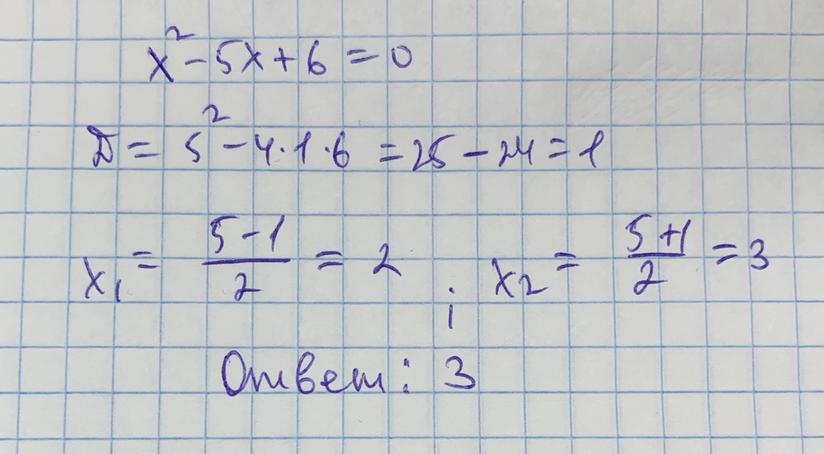 x² - 5x + 6 = 0
D = 5² - 4·1·6 = 25 - 24 = 1
x₁ = (5-1)/2 = 2 ; x₂ = (5+1)/2 = 3
Ответ: 3